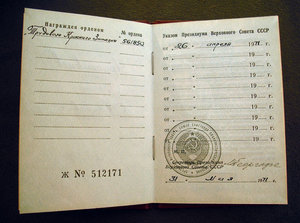 Награжден орденом
№ ордена
Трудового Красного Знамени
561850
Ж № 512171
Указом Президиума Верховного Совета СССР
от „26" апреля 1971 г.
от „ " 19 г.
от „ " 19 г.
от „ " 19 г.
от „ " 19 г.
от „ " 19 г.
от „ " 19 г.
от „ " 19 г.
Секретарь Президиума
Верховного Совета СССР
31 мая 1971 г.